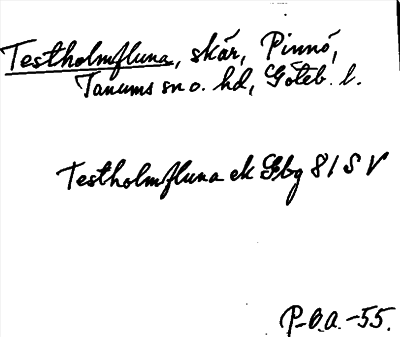 Testholmfluna, skär, Pinnö,
Tanums sn o. hd, Göteb. l.
Testholmfluna ek Gbg 81 S V
P-O.A. -55.